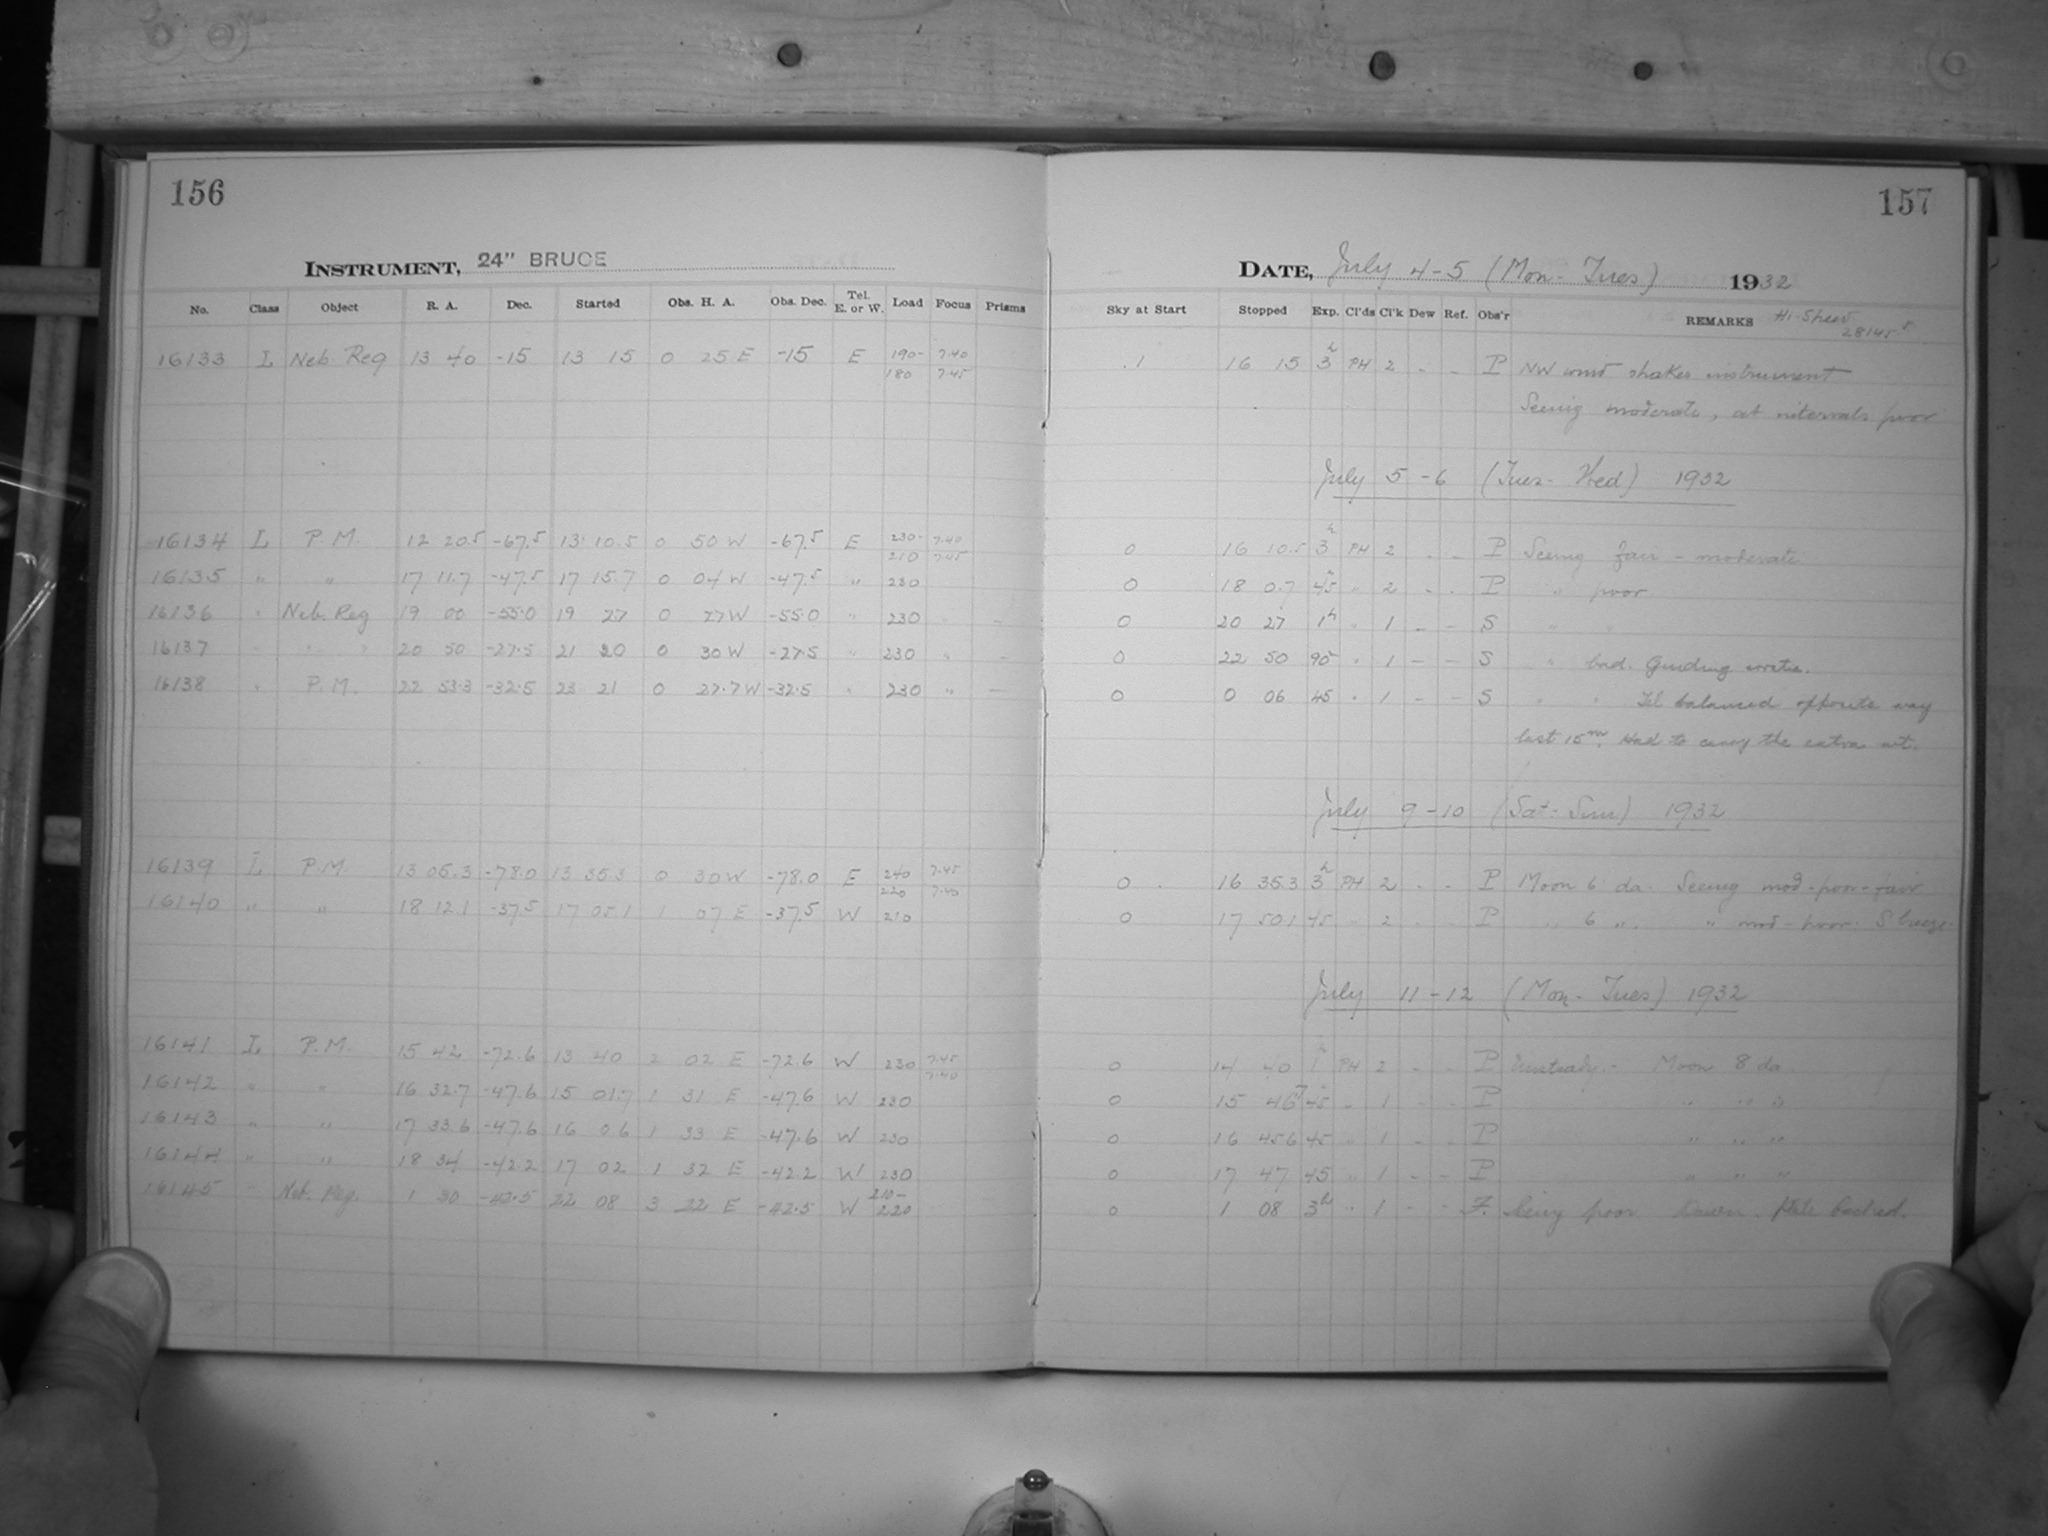 156
INSTRUMENT, 24" BRUCE
No. Class Object R. A. Dec. Started Obs. H. A. Obs. Dec. Tel. E. or W. Load Focus Prisms
16133 L Neb. Reg 13 40 -15 13 15 0 25 E -15 E 190- 7.40
180 7.45
16134 L P.M. 12 20.5 -67.5 13 10.5 0 50 W -67.5 E 230- 7.40
210 7.45
16135 " " 17 11.7 -47.5 17 15.7 0 04 W -47.5 " 230
16136 " Neb. Reg 19 00 -55.0 19 27 0 27 W -55.0 " 230 " -
16137 " " " 20 50 -27.5 21 20 0 30 W -27.5 " 230 " -
16138 " P.M. 22 53.3 -32.5 23 21 0 27.7 W -32.5 " 230 " -
16139 L P.M. 13 05.3 -78.0 13 35.3 0 30 W -78.0 E 240 7.45
220 7.40
16140 " " 18 12.1 -37.5 17 05.1 1 07 E -37.5 W 210
16141 L P.M. 15 42 -72.6 13 40 2 02 E -72.6 W 230 7.45
7.40
16142 " " 16 32.7 -47.6 15 01.7 1 31 E -47.6 W 230
16143 " " 17 33.6 -47.6 16 0.6 1 33 E -47.6 W 230
16144 " " 18 34 -42.2 17 02 1 32 E -42.2 W 230
16145 - Neb. Reg. 1 30 -42.5 22 08 3 22 E -42.5 W 210-
220
157
DATE, July 4-5 (Mon- Tues) 1932
Sky at Start Stopped Exp. Cl'ds Cl'k Dew Ref. Obs'r REMARKS Hi-Speed
28145
.1 16 15 3h PH 2 - - P NW wind shakes instrument
Seeing moderate, at intervals poor
July 5-6 (Tues- Wed) 1932
0 16 10.5 3h PH 2 - - P Seeing fair - moderate
0 18 0.7 45 " 2 - - P " poor
0 20 27 1h " 1 - - S " "
0 22 50 90 " 1 - - S " bad. Guiding erratic.
0 0 06 45 " 1 - - S " " Tel balanced opposite way
last 15m. Had to carry the extra wt.
July 9-10 (Sat- Sun) 1932
0 16 35.3 3h PH 2 - - P Moon 6 da. Seeing mod-poor-fair
0 17 50.1 45 " 2 - - P " 6 " " mod-poor. S breeze.
July 11-12 (Mon- Tues) 1932
0 14 40 1h PH 2 - - P Unsteady - Moon 8 da.
0 15 46.7 45 " 1 - - P " " "
0 16 45.6 45 " 1 - - P " " "
0 17 47 45 " 1 - - P " " "
0 1 08 3h " 1 - - F. Seeing poor Dawn. Plate backed.